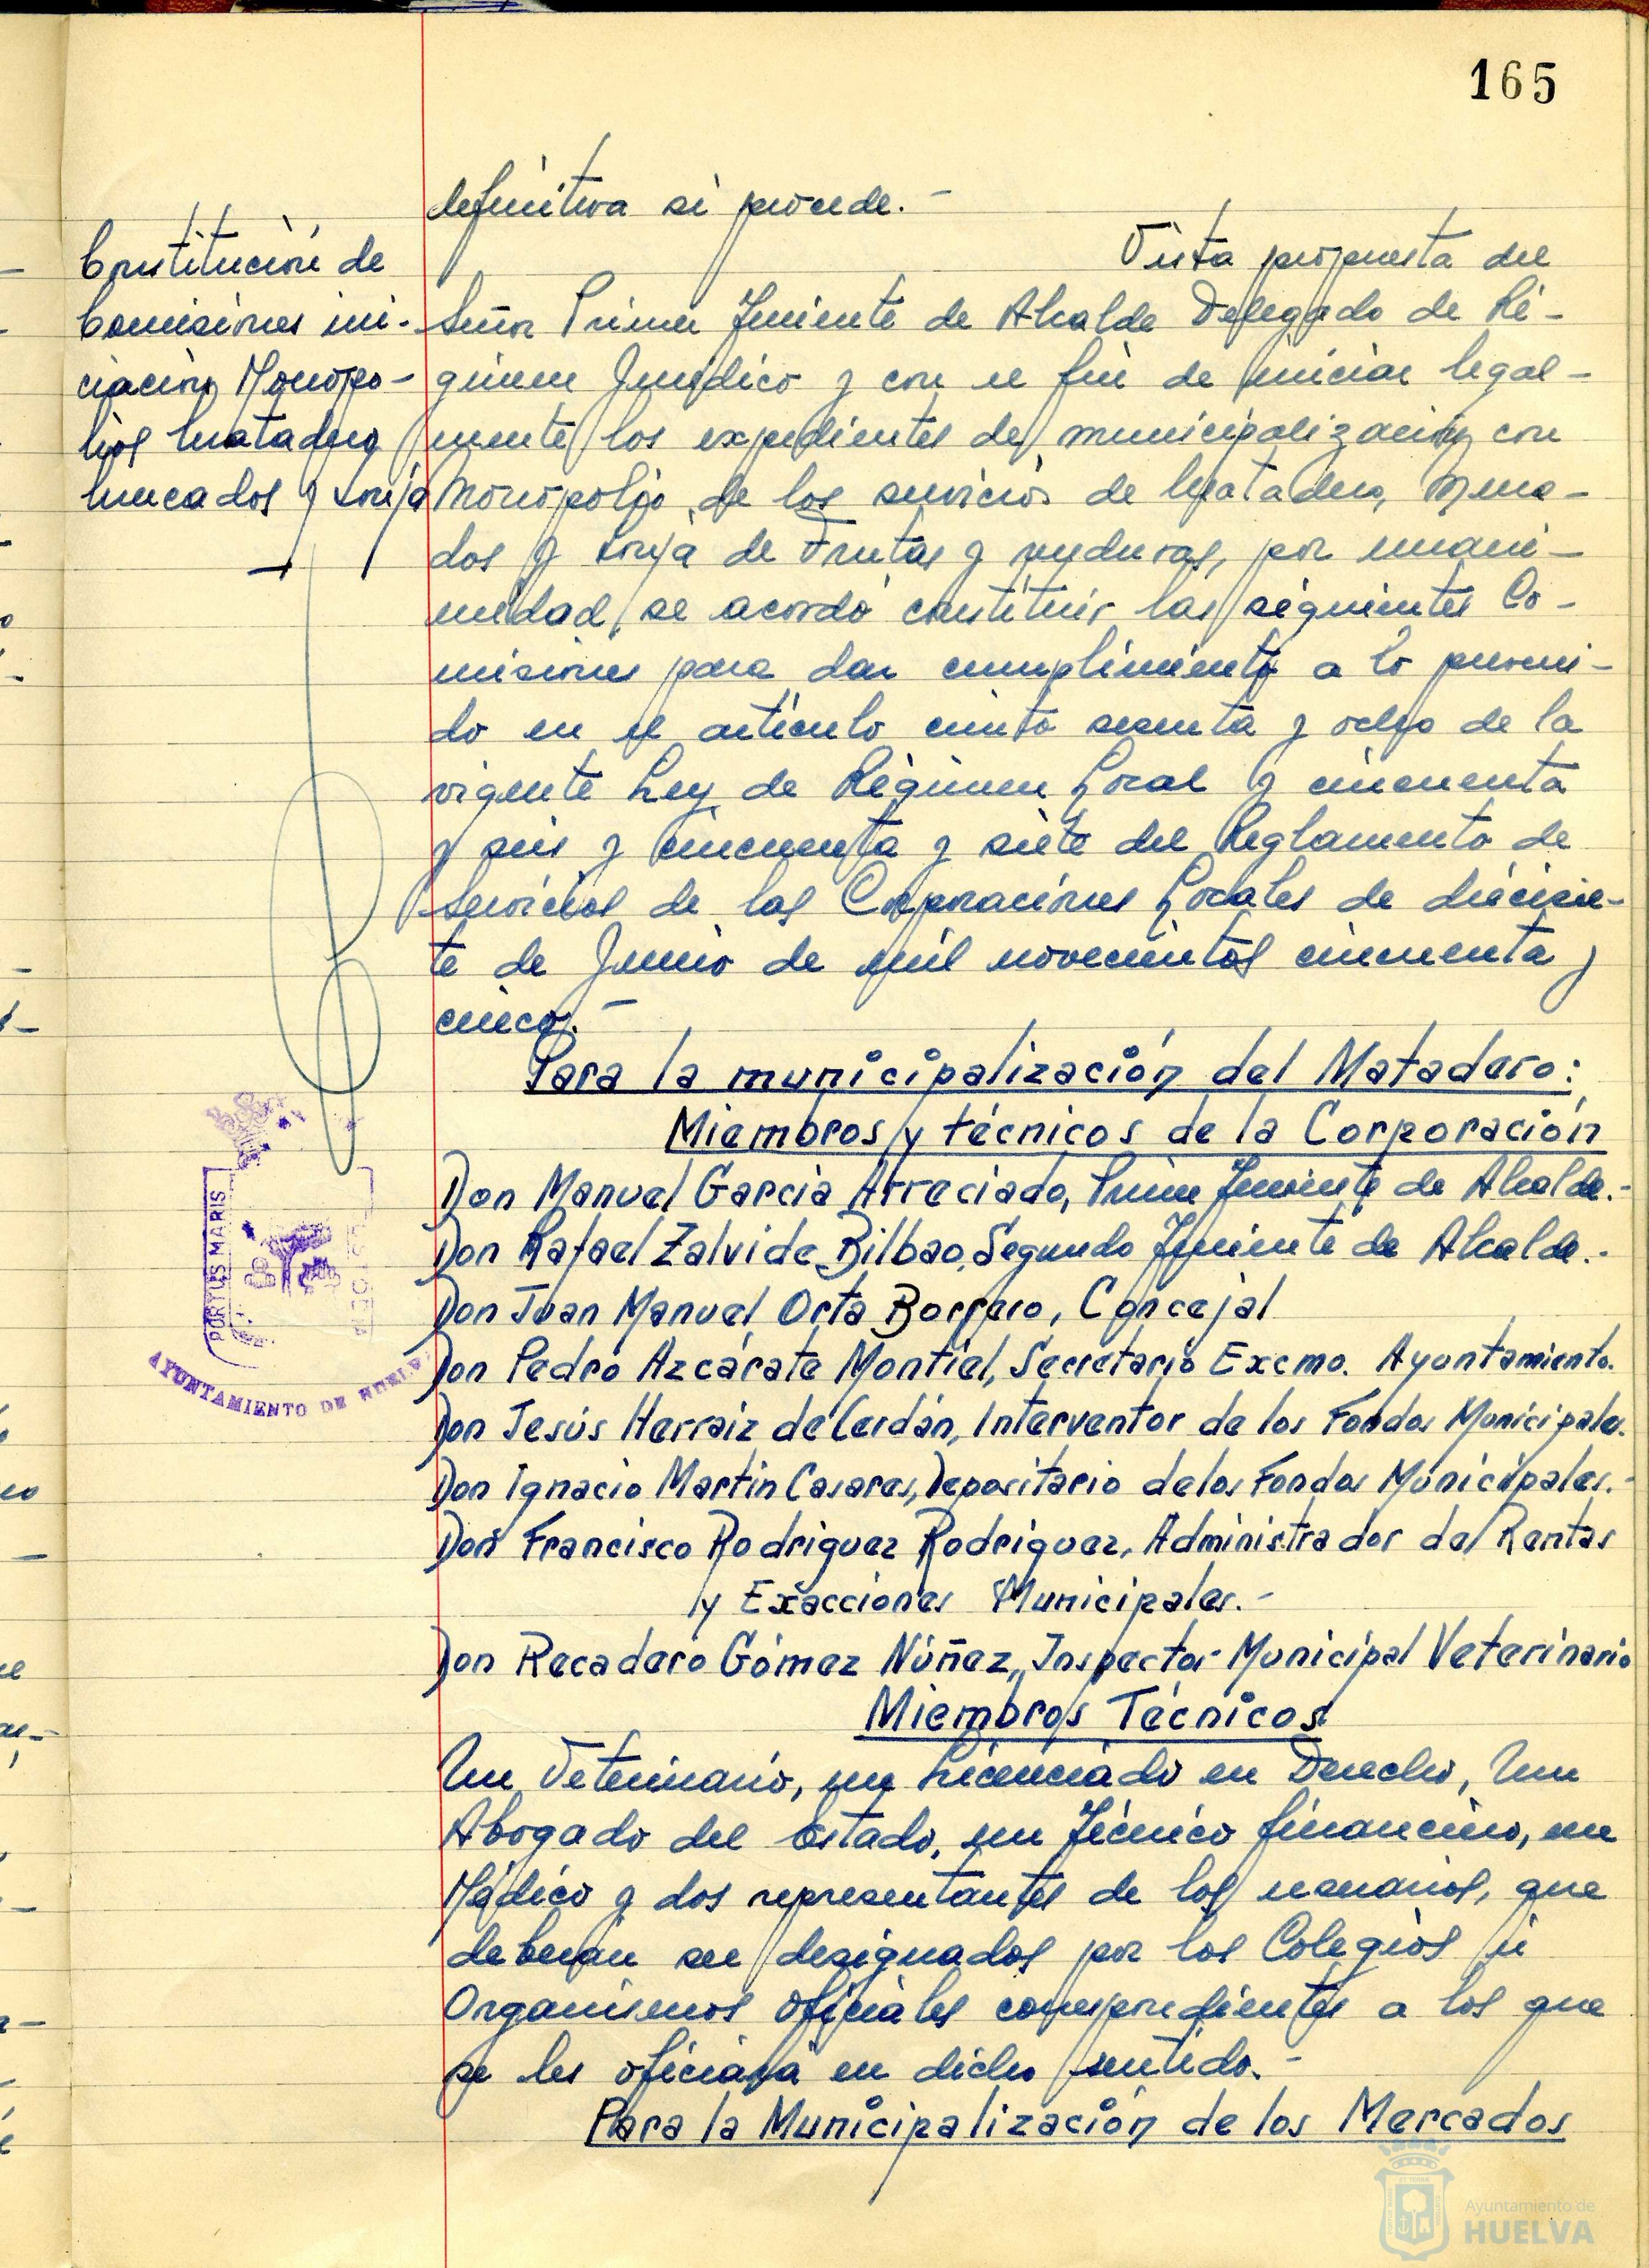 165
definitiva si procede.-
Constitución de
Comisiones ini-
ciación Monopo-
lios Matadero
Mercados y Lonja
Vista propuesta del
Señor Primer Teniente de Alcalde Delegado de Ré-
gimen Jurídico y con el fin de iniciar legal-
mente los expedientes de municipalización con
Monopolio de los servicios de Matadero, Merca-
dos y Lonja de Frutas y verduras, por unani-
midad, se acordó constituir las siguientes Co-
misiones para dar cumplimiento a lo preveni-
do en el artículo ciento sesenta y ocho de la
vigente Ley de Régimen Local y cincuenta
y seis y cincuenta y siete del Reglamento de
Servicios de las Corporaciones Locales de diecisie-
te de Junio de mil novecientos cincuenta y
cinco.-
Para la municipalización del Matadero:
Miembros y técnicos de la Corporación
Don Manuel Garcia Arreciado, Primer Teniente de Alcalde.-
Don Rafael Zalvide Bilbao, Segundo Teniente de Alcalde.-
Don Juan Manuel Orta Borrero, Concejal
Don Pedro Azcárate Montiel, Secretario Excmo. Ayuntamiento.
Don Jesús Herraiz de Cerdán, Interventor de los Fondos Municipales.
Don Ignacio Martin Casares, Depositario de los Fondos Municipales.-
Don Francisco Rodriguez Rodriguez, Administrador de Rentas
y Exacciones Municipales.-
Don Recadero Gómez Núñez, Inspector Municipal Veterinario
Miembros Técnicos
Un Veterinario, un Licenciado en Derecho, Un
Abogado del Estado, un Técnico financiero, un
Médico y dos representantes de los usuarios, que
deberán ser designados por los Colegios ú
Organismos oficiales correspondientes a los que
se les oficiará en dicho sentido.-
Para la Municipalización de los Mercados
PORTUS MARIS
AYUNTAMIENTO DE HUELVA
Ayuntamiento de
HUELVA